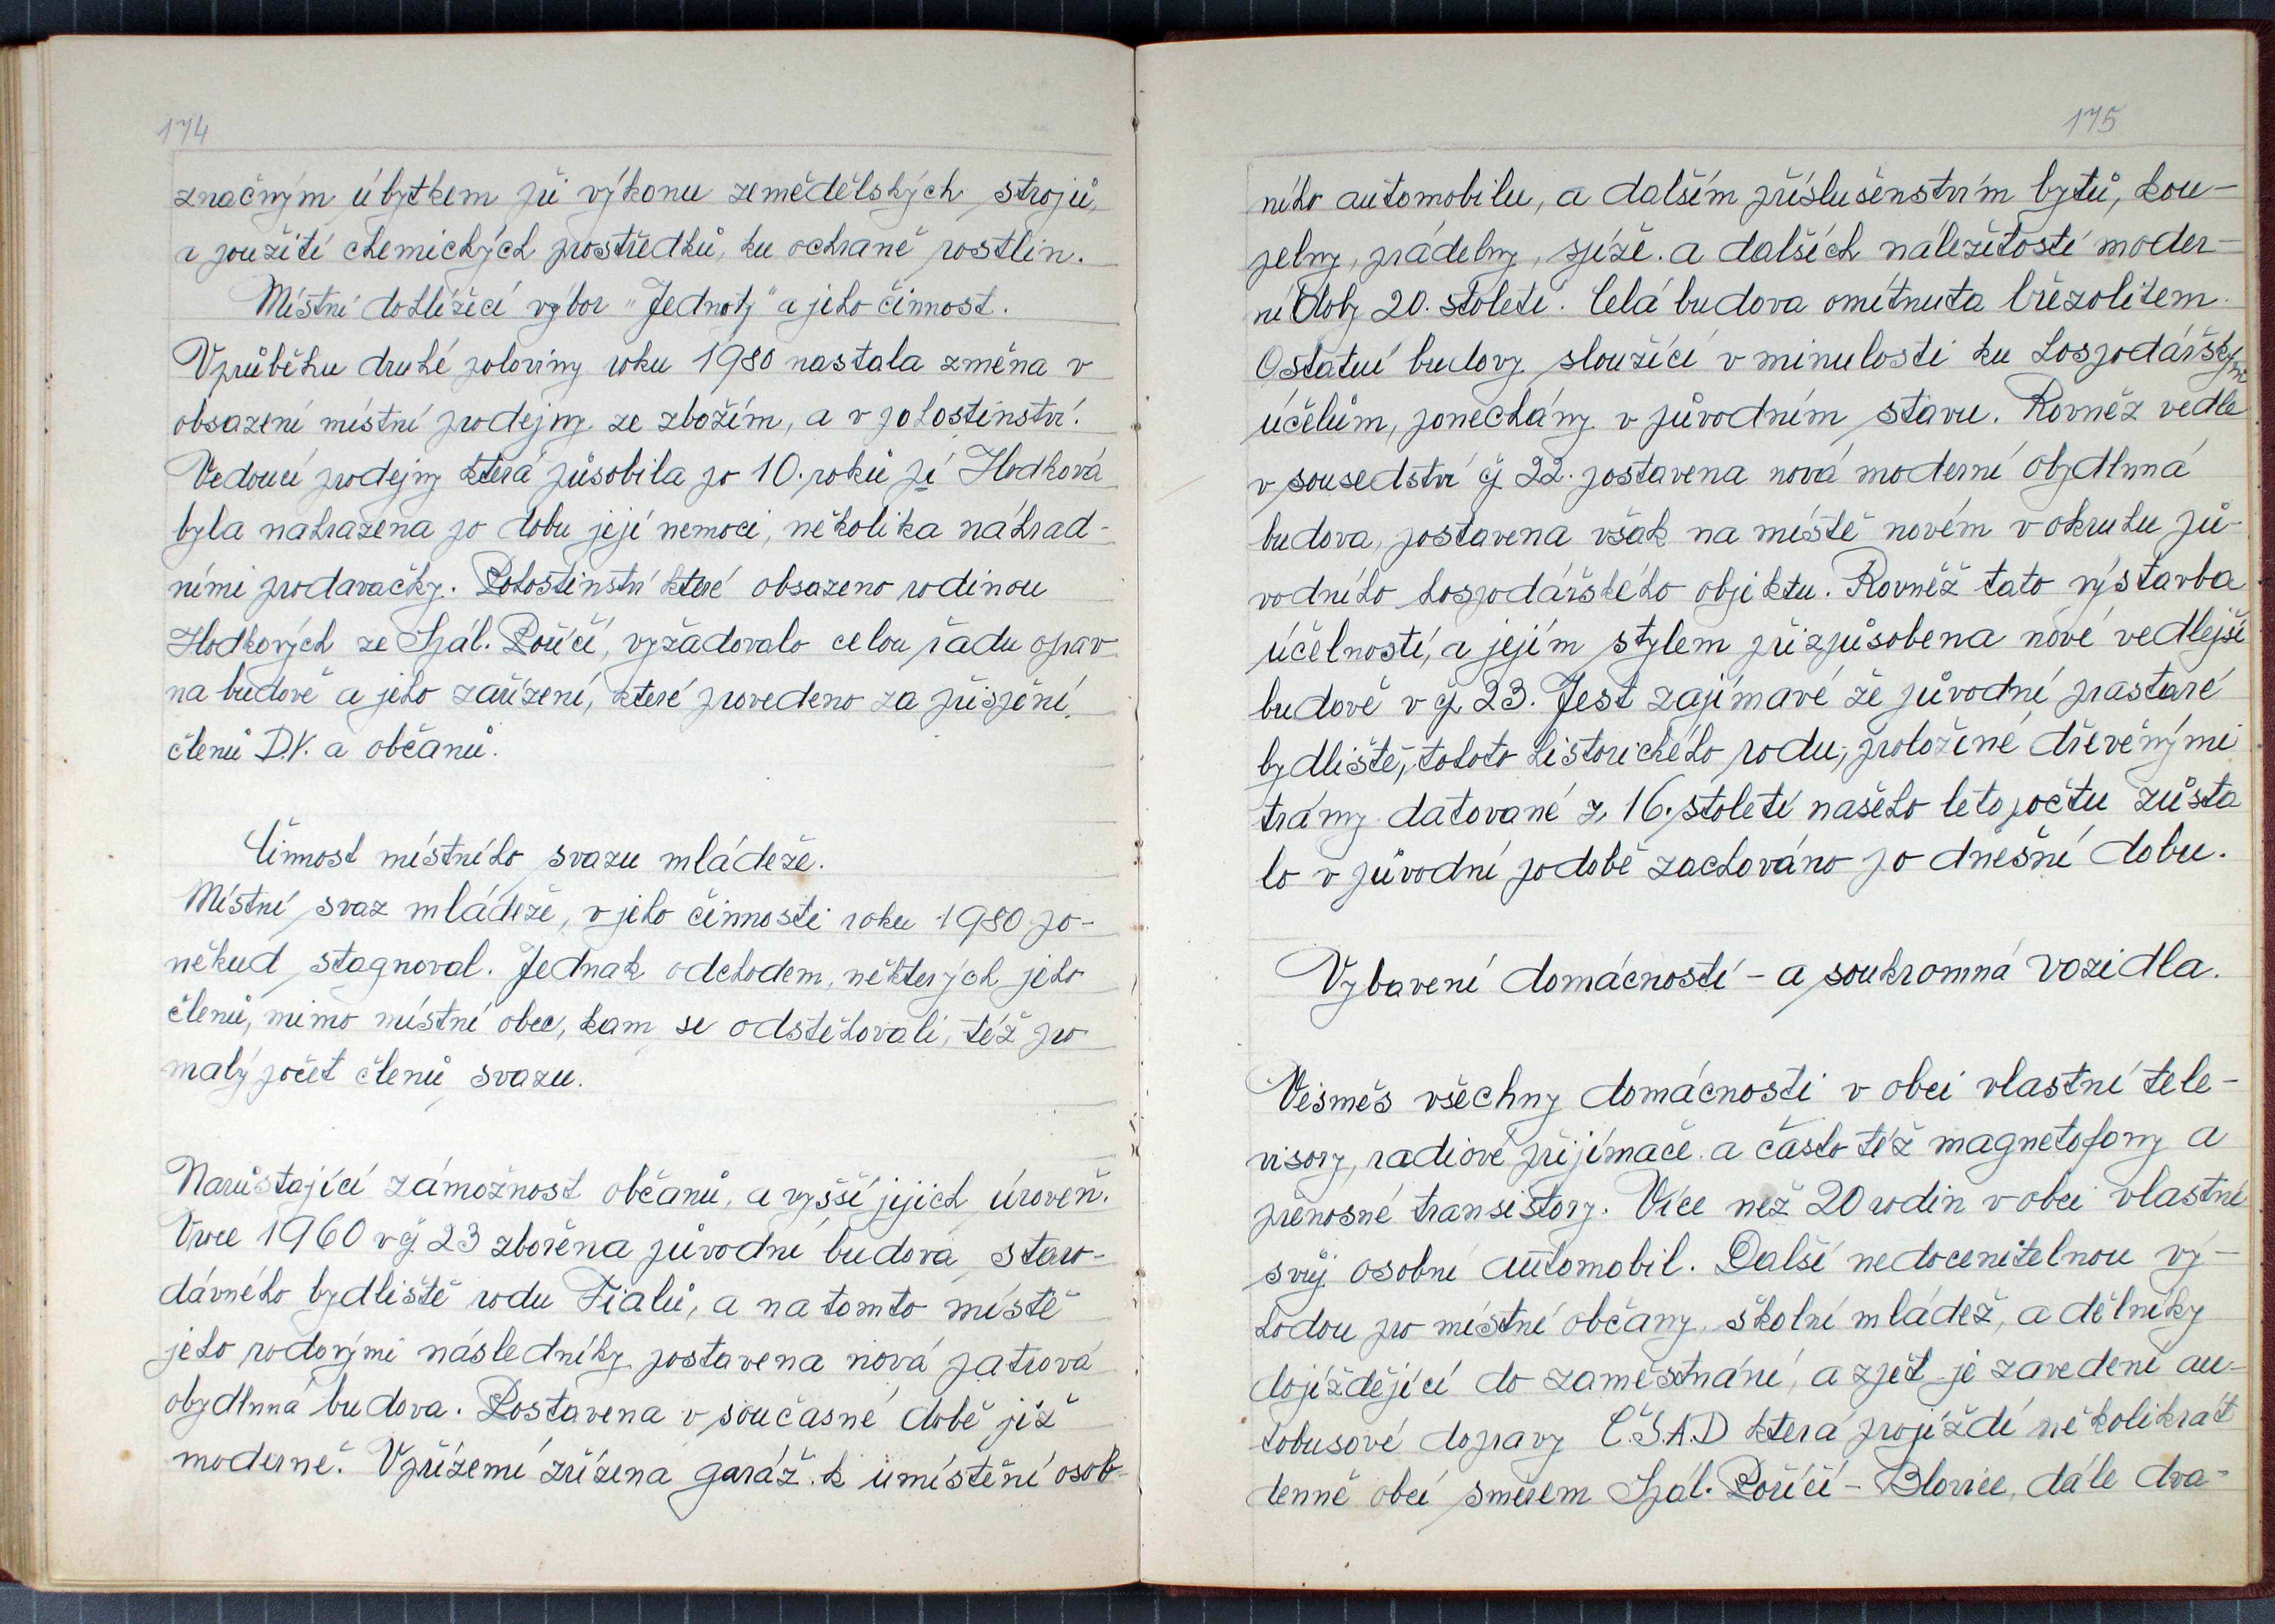 174
značným úbytkem při výkonu zemědělských strojů,
a použití chemických prostředků, ku ochraně rostlin.
Místní dohlížecí výbor "Jednoty" a jeho činnost.
V průběhu druhé poloviny roku 1980 nastala změna v
obsazení místní prodejny ze zbožím, a v pohostinství.
Vedoucí prodejny která působila po 10. roků pí Hodková
byla nahražena po dobu její nemoci, několika náhrad-
ními prodavačky. Pohostinství které obsazeno rodinou
Hodkových ze Spál. Poříčí, vyžadovalo celou řadu oprav
na budově a jeho zařízení, které provedeno za přispění
členů D.V. a občanů.
Činnost místního svazu mládeže.
Místní svaz mládeže, v jeho činnosti roku 1980 po-
někud stagnoval. Jednak odchodem, některých jeho
členů, mimo místní obec, kam se odstěhovali, též pro
malý počet členů svazu.
Narůstající zámožnost občanů, a vyšší jejich úroveň.
V roce 1960 v čp. 23 zbořena původní budova staro-
dávného bydliště rodu Fialů, a na tomto místě
jeho rodovými následníky postavena nová patrová
obydlnná budova. Postavena v současné době již
moderně. V přízemí zřízena garáž k umístění osob-
175
ního automobilu, a dalším příslušenstvím bytů, kou-
pelny, prádelny, spíže. a dalších náležitostí moder-
ní doby 20. století. Celá budova omítnuta břizolitem.
Ostatní budovy sloužící v minulosti ku hospodářským
účelům, ponechány v původním stavu. Rovněž vedle
v sousedství čp. 22. postavena nová moderní obydlnná
budova, postavena však na místě novém v okruhu pů-
vodního hospodářského objektu. Rovněž tato výstavba
účelností, a jejím stylem přizpůsobena nové vedlejší
budově v čp. 23. Jest zajímavé že původní prastaré
bydliště, tohoto historického rodu, proložené dřevěnými
trámy datované z. 16. století našeho letopočtu zůsta
lo v původní podobě zachováno po dnešní dobu.
Vybavení domácností - a soukromná vozidla.
Vesměs všechny domácnosti v obci vlastní tele-
visory, radiové přijímače a často též magnetofony a
přenosné transistory. Více než 20 rodin v obci vlastní
svůj osobní automobil. Další nedocenitelnou vý-
hodou pro místní občany, školní mládež, a dělníky
dojíždějící do zaměstnání, a zpět je zavedení au-
tobusové dopravy Č.S.A.D která projíždí několikrát
denně obcí směrem Spál. Poříčí - Blovice, dále dva-